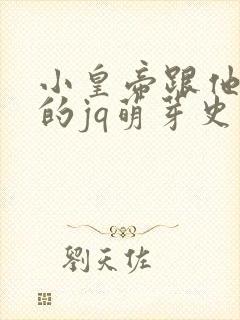 小皇帝跟他
的jq萌芽史
劉天佐